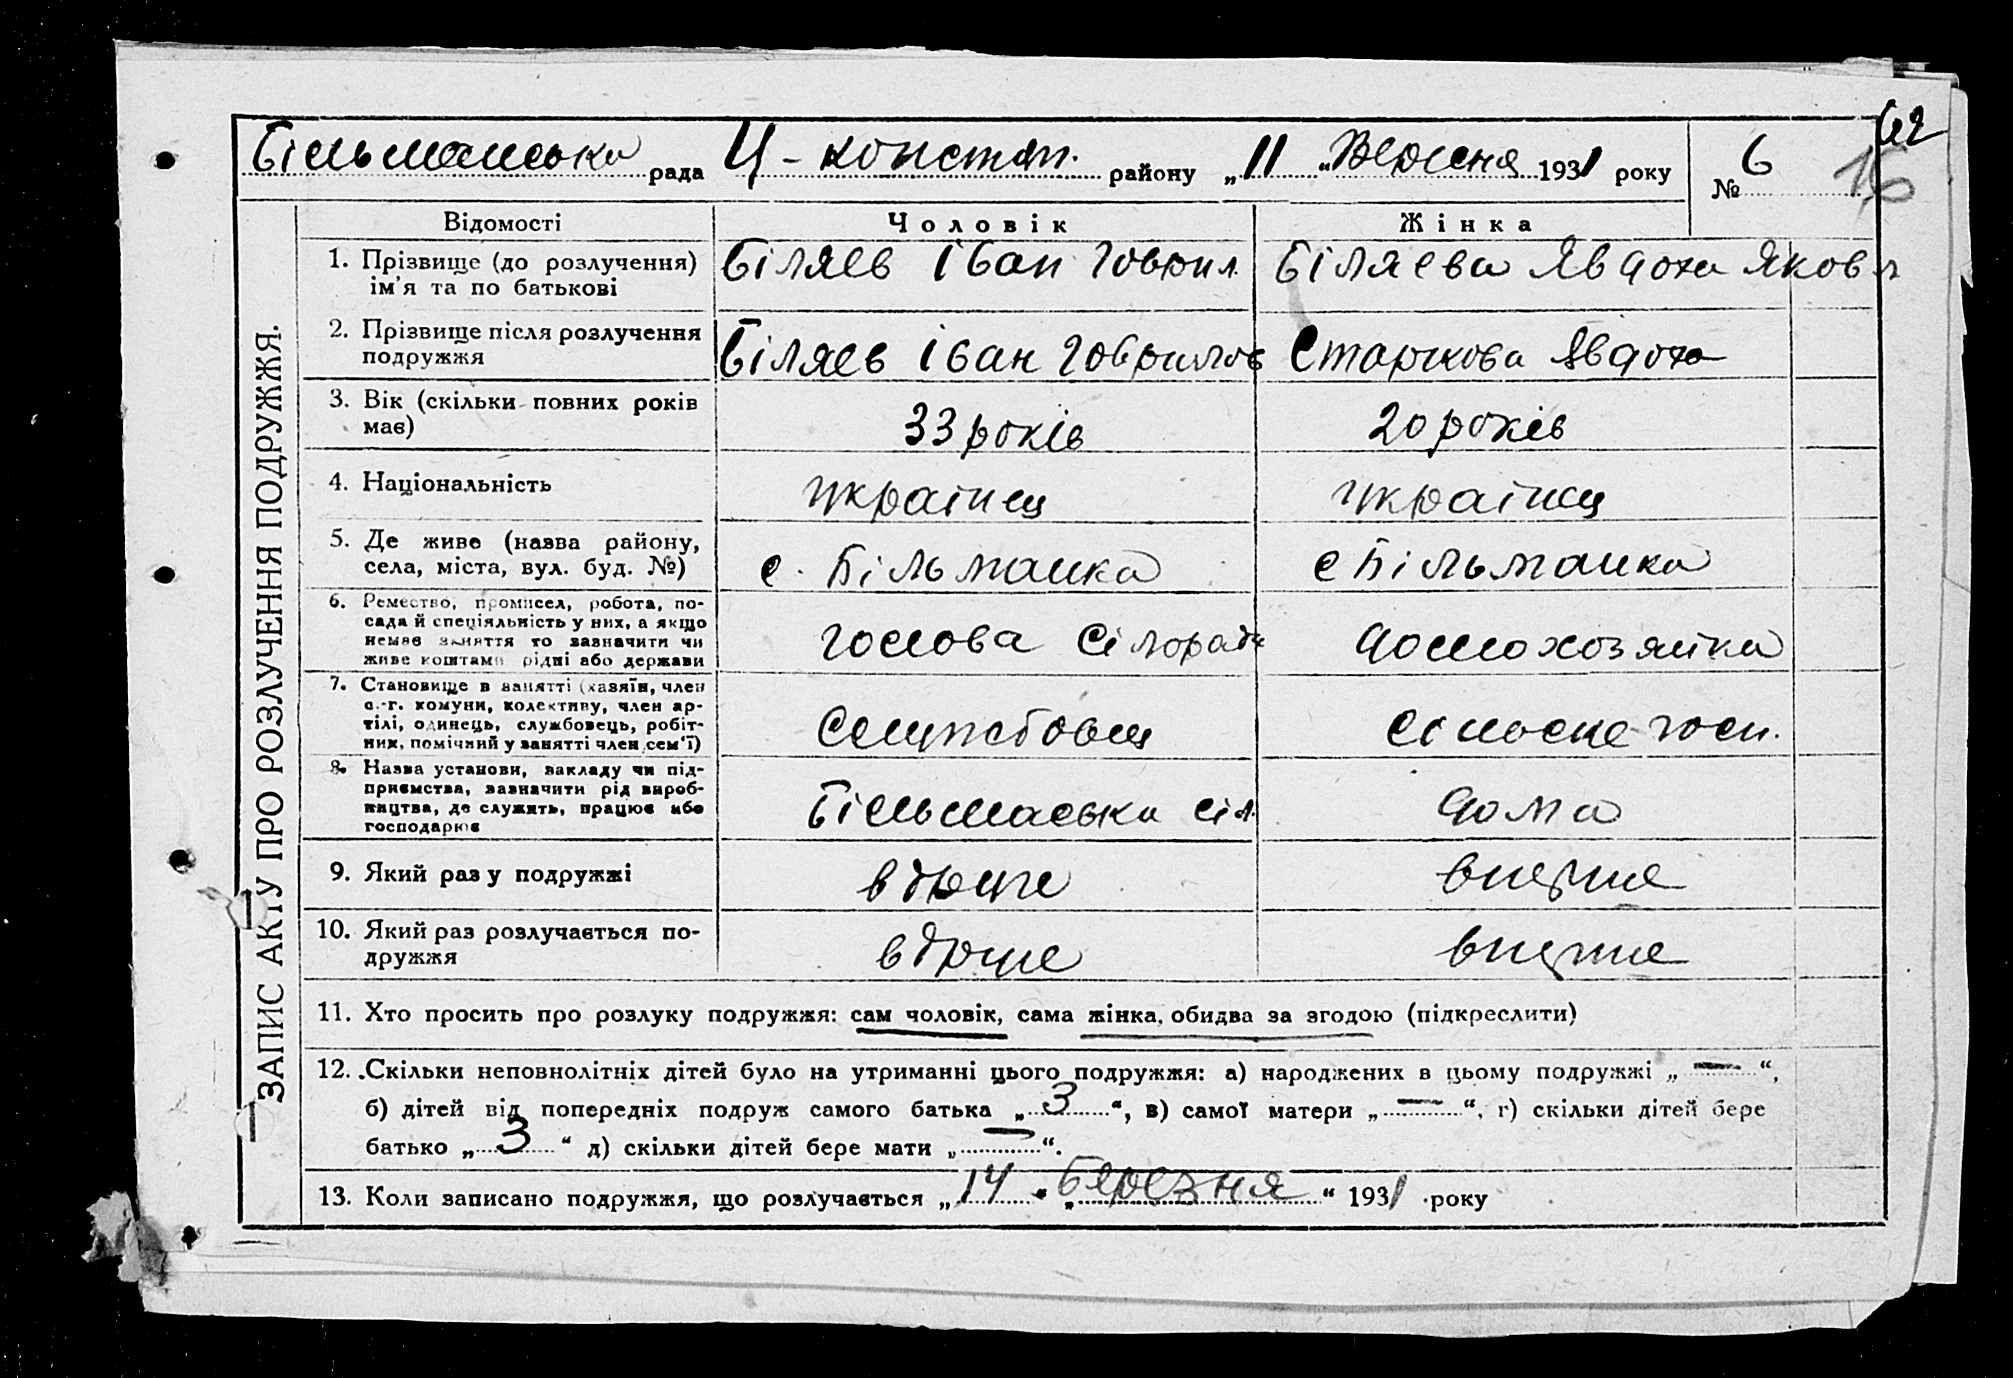 62
Більманська рада Ц-констян. району „11“ Вересня 1931 року № 6 16
ЗАПИС АКТУ ПРО РОЗЛУЧЕННЯ ПОДРУЖЖЯ.
Відомості Чоловік Жінка
1. Прізвище (до розлучення) ім'я та по батькові Біляєв Іван Гаврил. Біляєва Явдоха Яковл
2. Прізвище після розлучення подружжя Біляєв Іван Гаврилов Старкова Явдоха
3. Вік (скільки повних років має) 33 років 20 років
4. Національність українец українец
5. Де живе (назва району, села, міста, вул. буд. №) с. Більманка с Більманка
6. Ремество, промисел, робота, посада й спеціяльність у них, а якщо немає заняття то зазначити чи живе коштами рідні або держави голова Сілради домохозяйка
7. Становище в занятті (хазяїн, член с.-г. комуни, колективу, член артілі, одинець, службовець, робітник, помічний у занятті член сем'ї) служтбовец сільське госп.
8. Назва установи, закладу чи підприємства, зазначити рід виробництва, де служить, працює або господарює Більмаська сіл. дома
9. Який раз у подружжі вдруге вперше
10. Який раз розлучається подружжя вдруге вперше
11. Хто просить про розлуку подружжя: сам чоловік, сама жінка, обидва за згодою (підкреслити)
12. Скільки неповнолітніх дітей було на утриманні цього подружжя: а) народжених в цьому подружжі „—“,
б) дітей від попередніх подруж самого батька „3“, в) самої матери „—“, г) скільки дітей бере
батько „3“ д) скільки дітей бере мати „—“.
13. Коли записано подружжя, що розлучається „14“ „Березня“ 1931 року